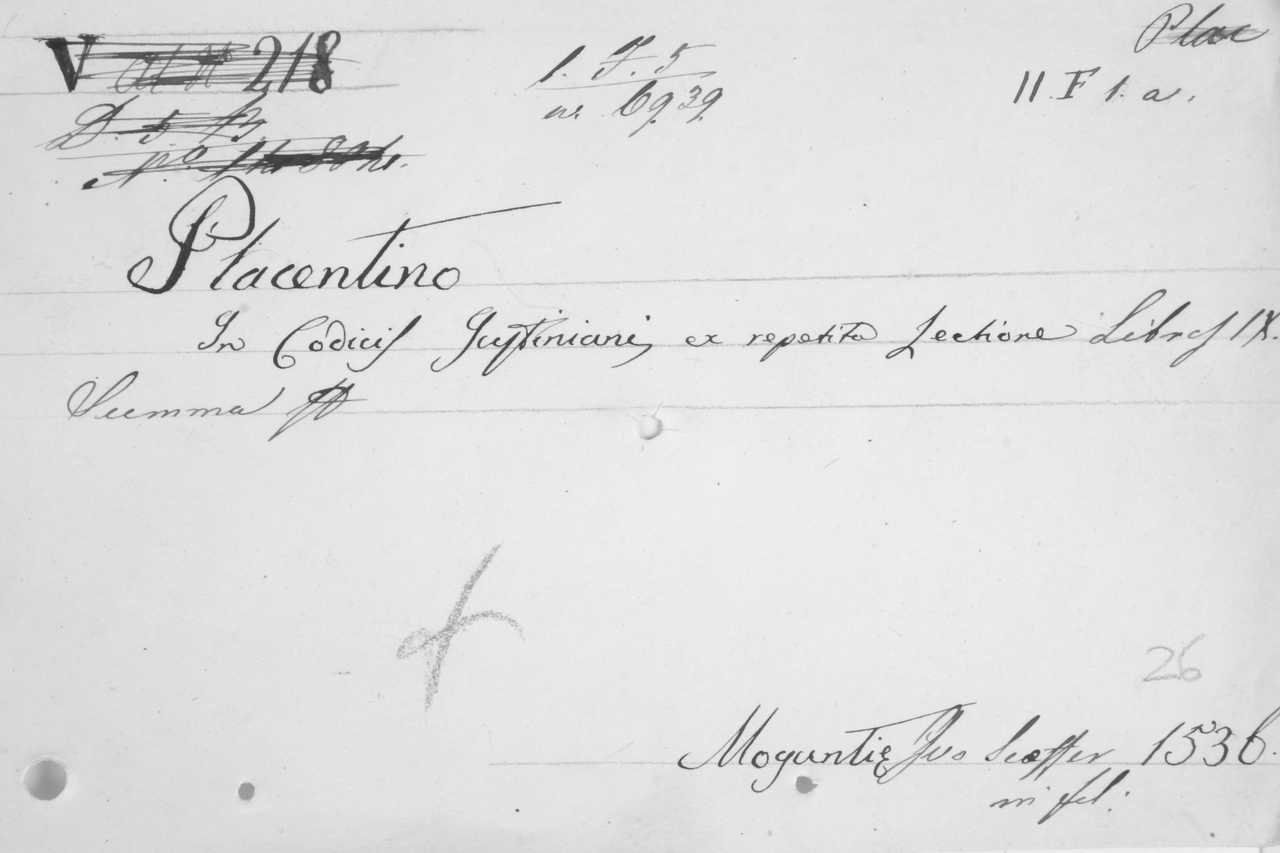 V 218
1. F. 5
Plac
nr. 6939
II. F 1. a.
D. 5
N.º
Placentino
In Codicis Justiniani, ex repetita Lectione Libros IX.
Summa
26
Moguntię Ivo Scœffer 1536.
in fol: